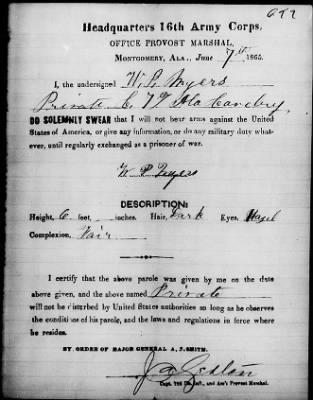 677
Headquarters 16th Army Corps,
OFFICE PROVOST MARSHAL,
MONTGOMERY, ALA., June 7th 1865.
I, the undersigned W. P. Myers
Private C. 7th Ala Cavalry,
DO SOLEMNLY SWEAR that I will not bear arms against the United
States of America, or give any information, or do any military duty what-
ever, until regularly exchanged as a prisoner of war.
W P Myers
DESCRIPTION:
Height, 6 feet, — inches. Hair, Dark Eyes, Hazel
Complexion, Fair
I certify that the above parole was given by me on the date
above given, and the above named Private
will not be disturbed by United States authorities so long as he observes
the conditions of his parole, and the laws and regulations in force where
he resides.
BY ORDER OF MAJOR GENERAL A. J. SMITH.
Capt. Inft., and Ass't Provost Marshal.